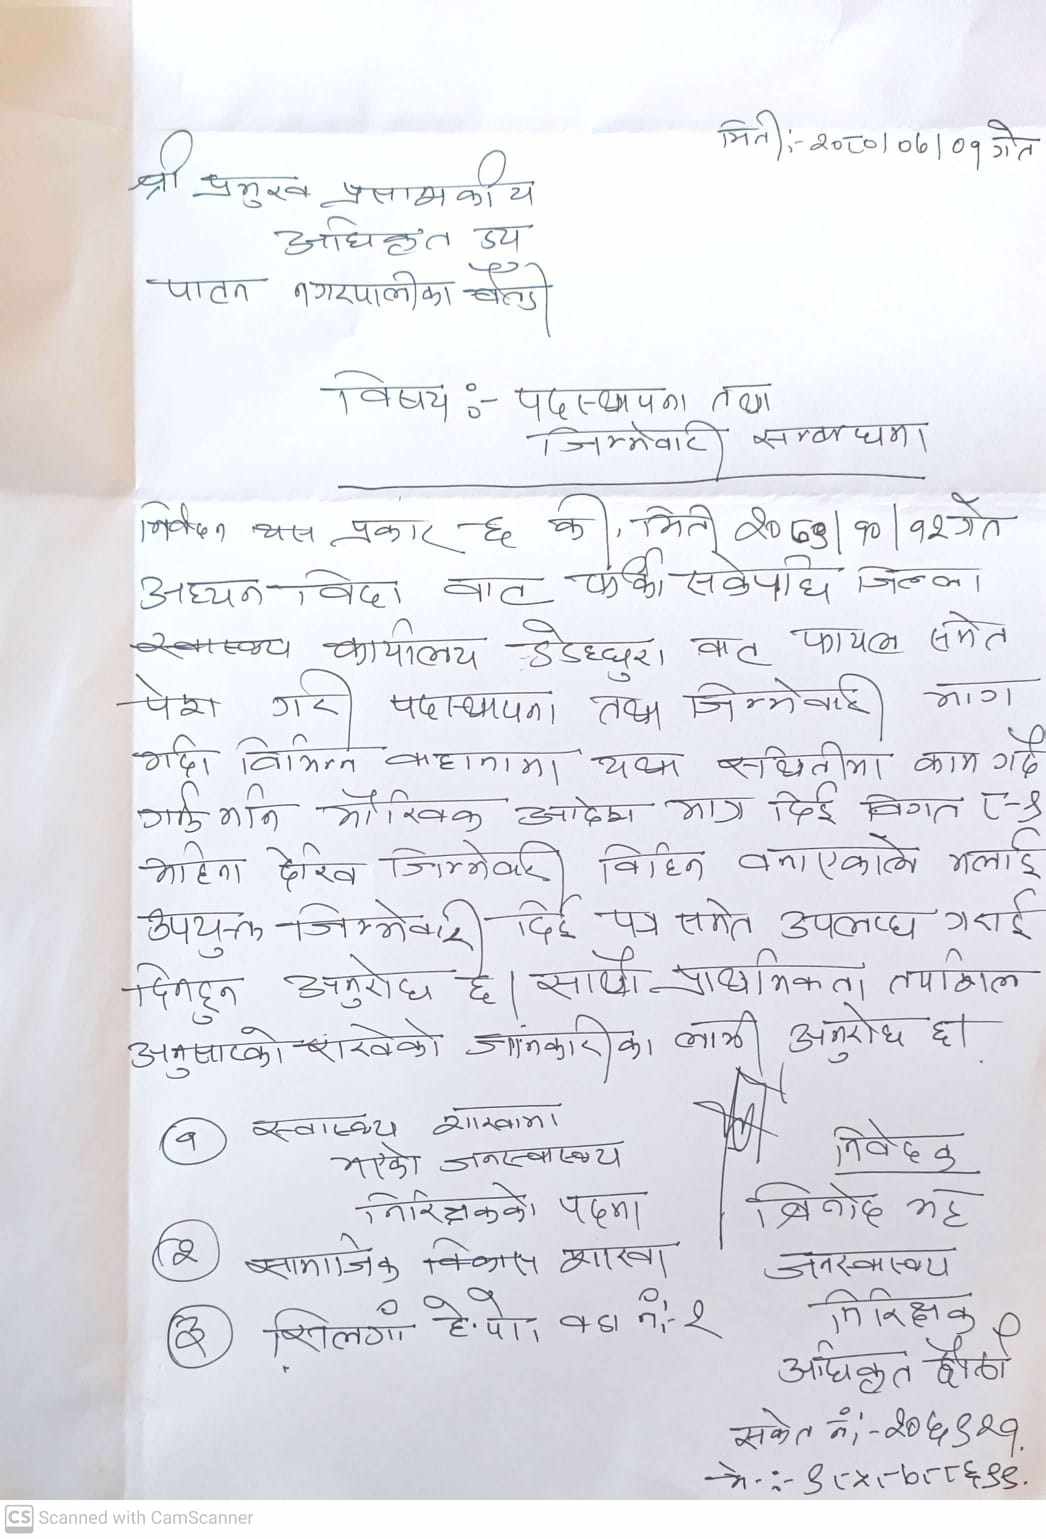 मिती:- २०८०/०६/०१ गते
श्री प्रमुख प्रसासकीय
अधिकृत ज्यु
पाटन नगरपालीका बैतडी
विषय :- पदस्थापना तथा
जिम्मेवारी सम्बन्धमा
निवेदन यस प्रकार छ की, मिती २०७९/१०/१२ गते
अध्यन विदा बाट फर्की सकेपछि जिल्ला
स्वास्थ्य कार्यालय डडेल्धुरा बाट फायल समेत
पेश गरी पदस्थापना तथा जिम्मेवारी माग
गर्दा विभिन्न बाहानामा यथा स्थितीमा काम गर्दै
गर्नु भनि मौखिक आदेश मात्र दिई विगत ८-९
महिना देखि जिम्मेवारी विहिन बनाएकाले मलाई
उपयुक्त जिम्मेवारी दिई पत्र समेत उपलब्ध गराई
दिनुहुन अनुरोध छ। साथै प्राथमिकता तपशिल
अनुसारको राखेको जानकारीका लागी अनुरोध छ।
१ स्वास्थ्य शाखामा
भएको जनस्वास्थ्य
निरिक्षकको पदमा
२ सामाजिक विकास शाखा
३ सिलगा हे.पो. वडा नं:- २
निवेदक
बिनोद भट्ट
जनस्वास्थ्य
निरिक्षक
अधिकृत छैठौ
संकेत नं:- २०६९२१.
मो.:- ९८४८७८८६९९.
CS Scanned with CamScanner